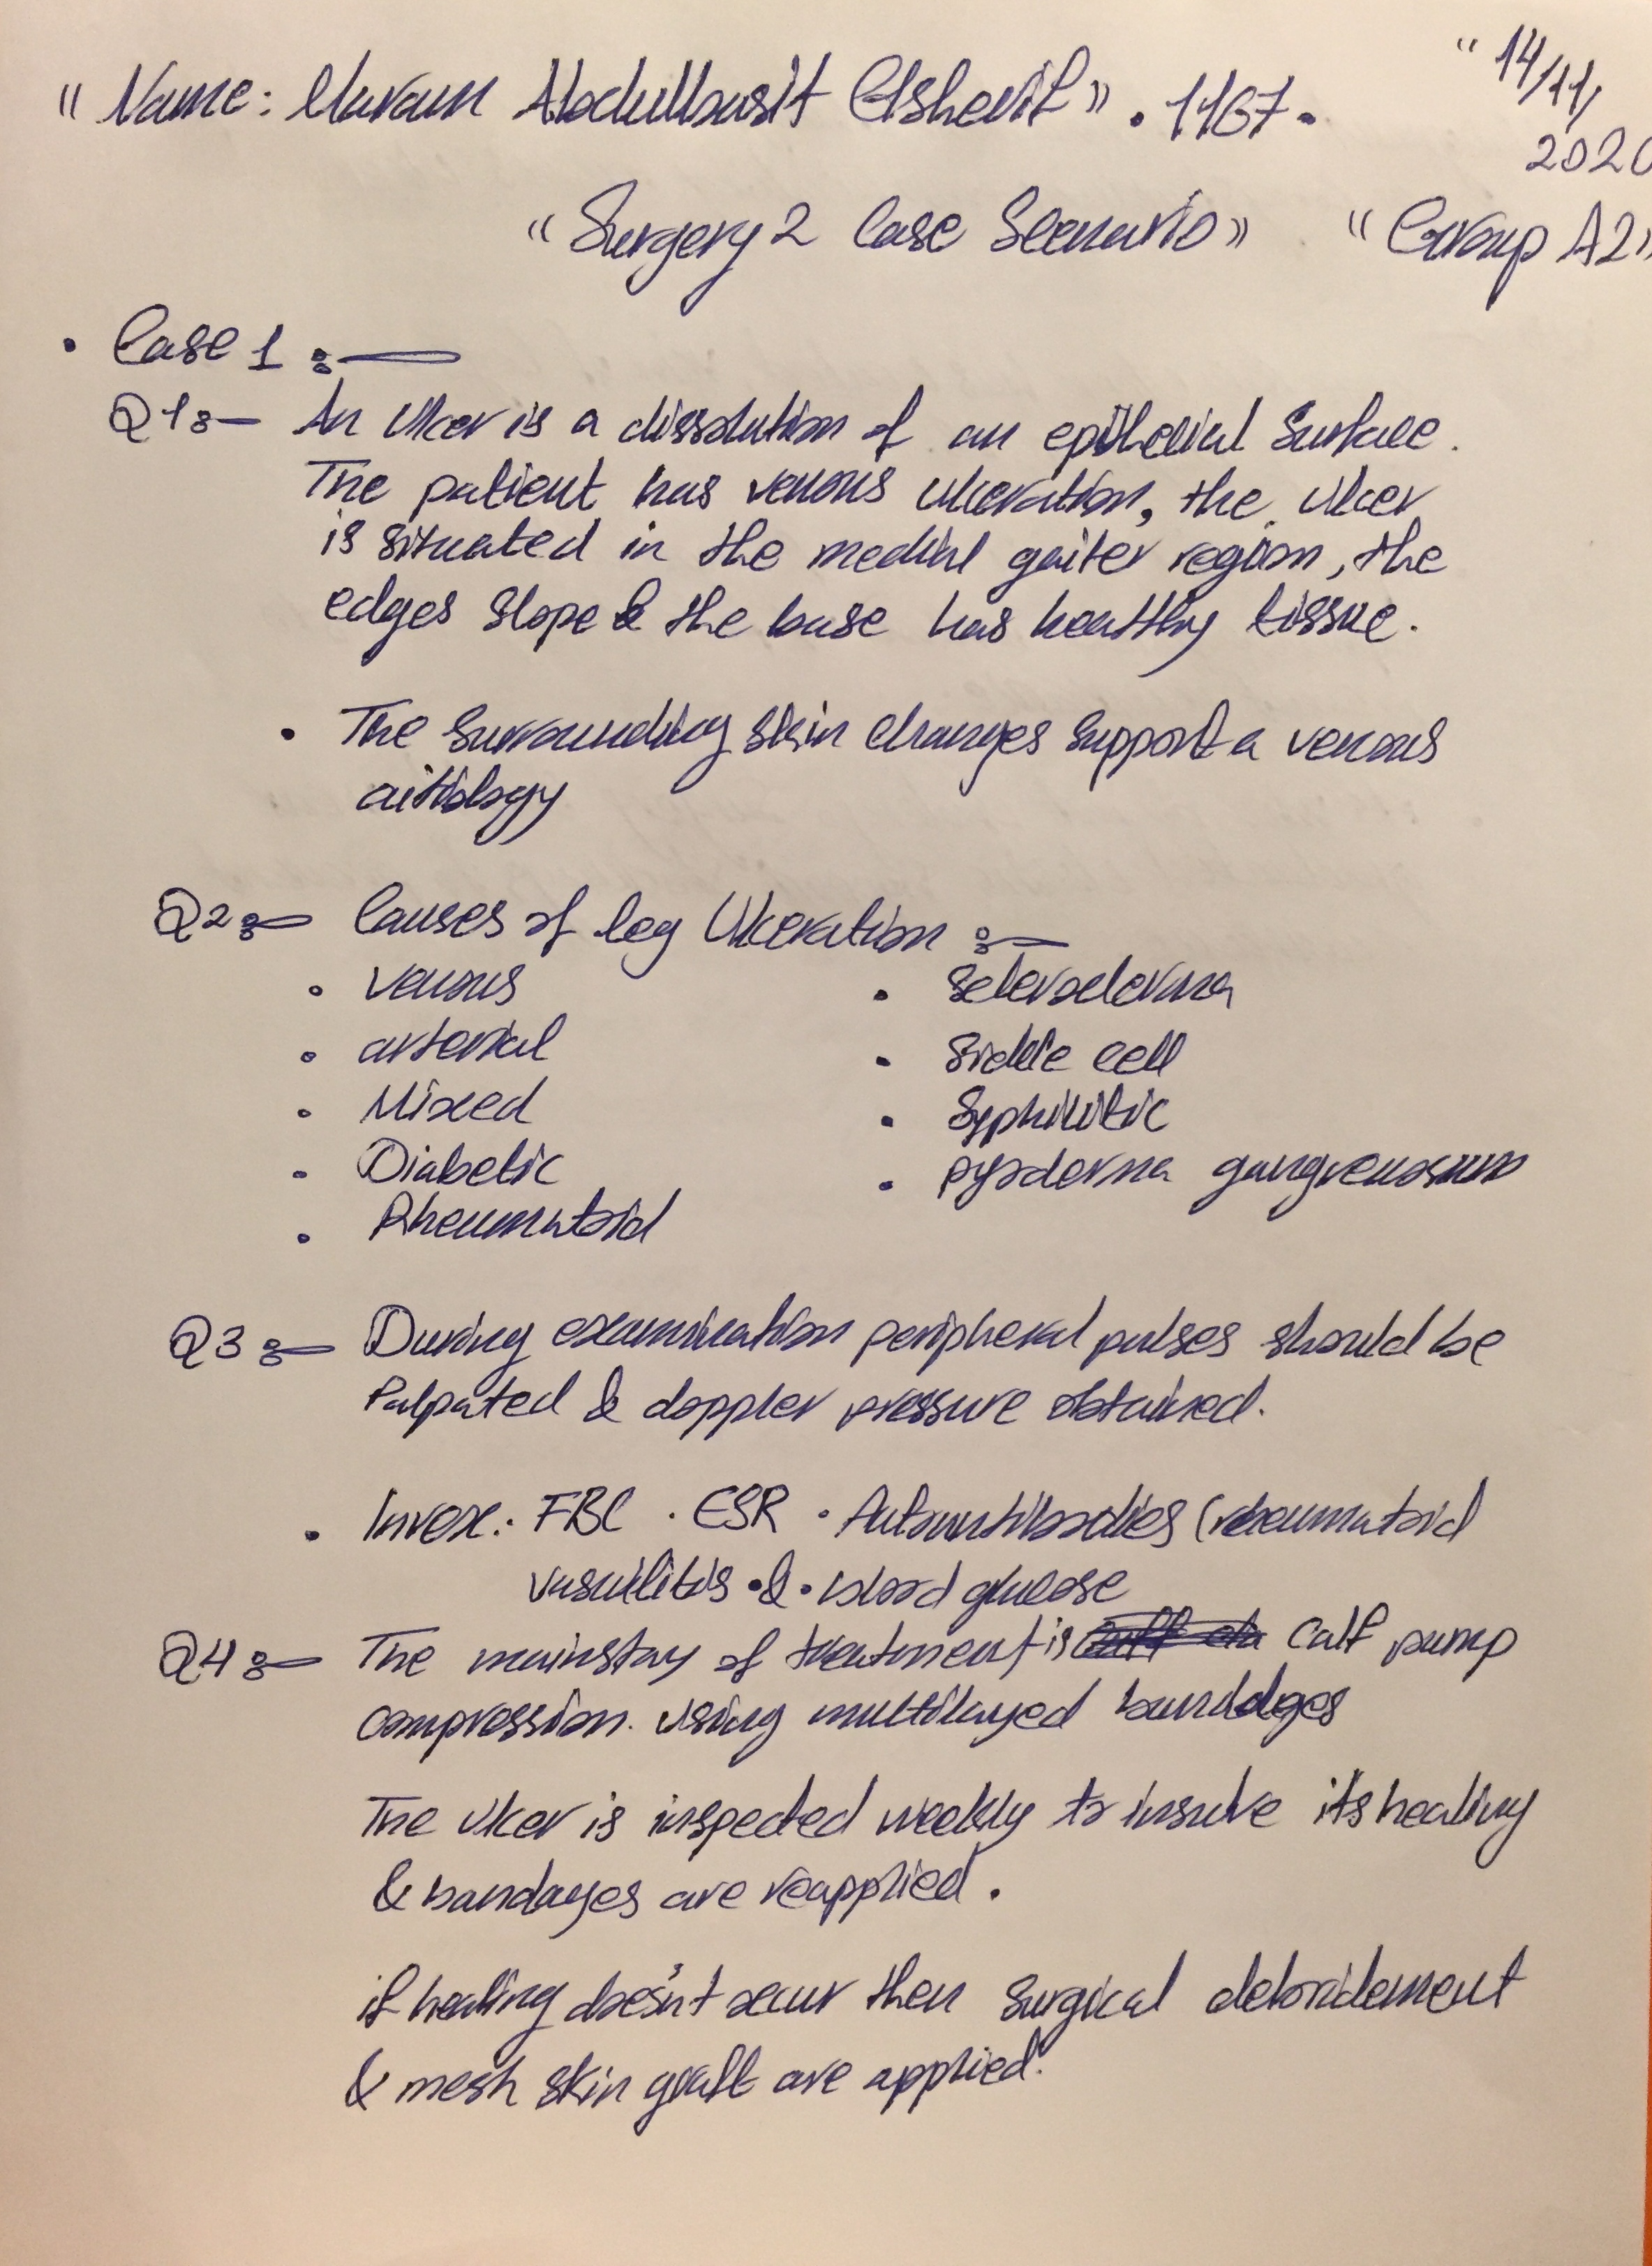 "Name: Maram Abdulbasit Elsherif" . 1167.
"14/11/
2020
"Surgery 2 Case Scenario" "Group A2"
• Case 1 :
Q1:- An Ulcer is a dissolution of an epithelial surface.
The patient has venous ulceration, the ulcer
is situated in the medial gaiter region, the
edges slope & the base has healthy tissue.
• The surrounding skin changes support a venous
aitiology
Q2:- Causes of leg Ulceration :-
• venous
• arterial
• Mixed
• Diabetic
• Rheumatoid
• scleroderma
• sickle cell
• Syphilitic
• pyoderma gangrenosum
Q3:- During examination peripheral pulses should be
Palpated & doppler pressure obtained.
• Invex: FBC . ESR . Autoantibodies (rheumatoid
vasculitis • & • blood glucose
Q4:- The mainstay of treatment is Calf pump
compression. using multilayed bandages
The ulcer is inspected weekly to insure its healing
& bandages are reapplied.
if healing does'nt occur then surgical debridement
& mesh skin graft are applied.